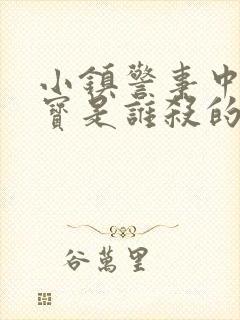 小鎮警事中
寶是誰殺的
谷萬里